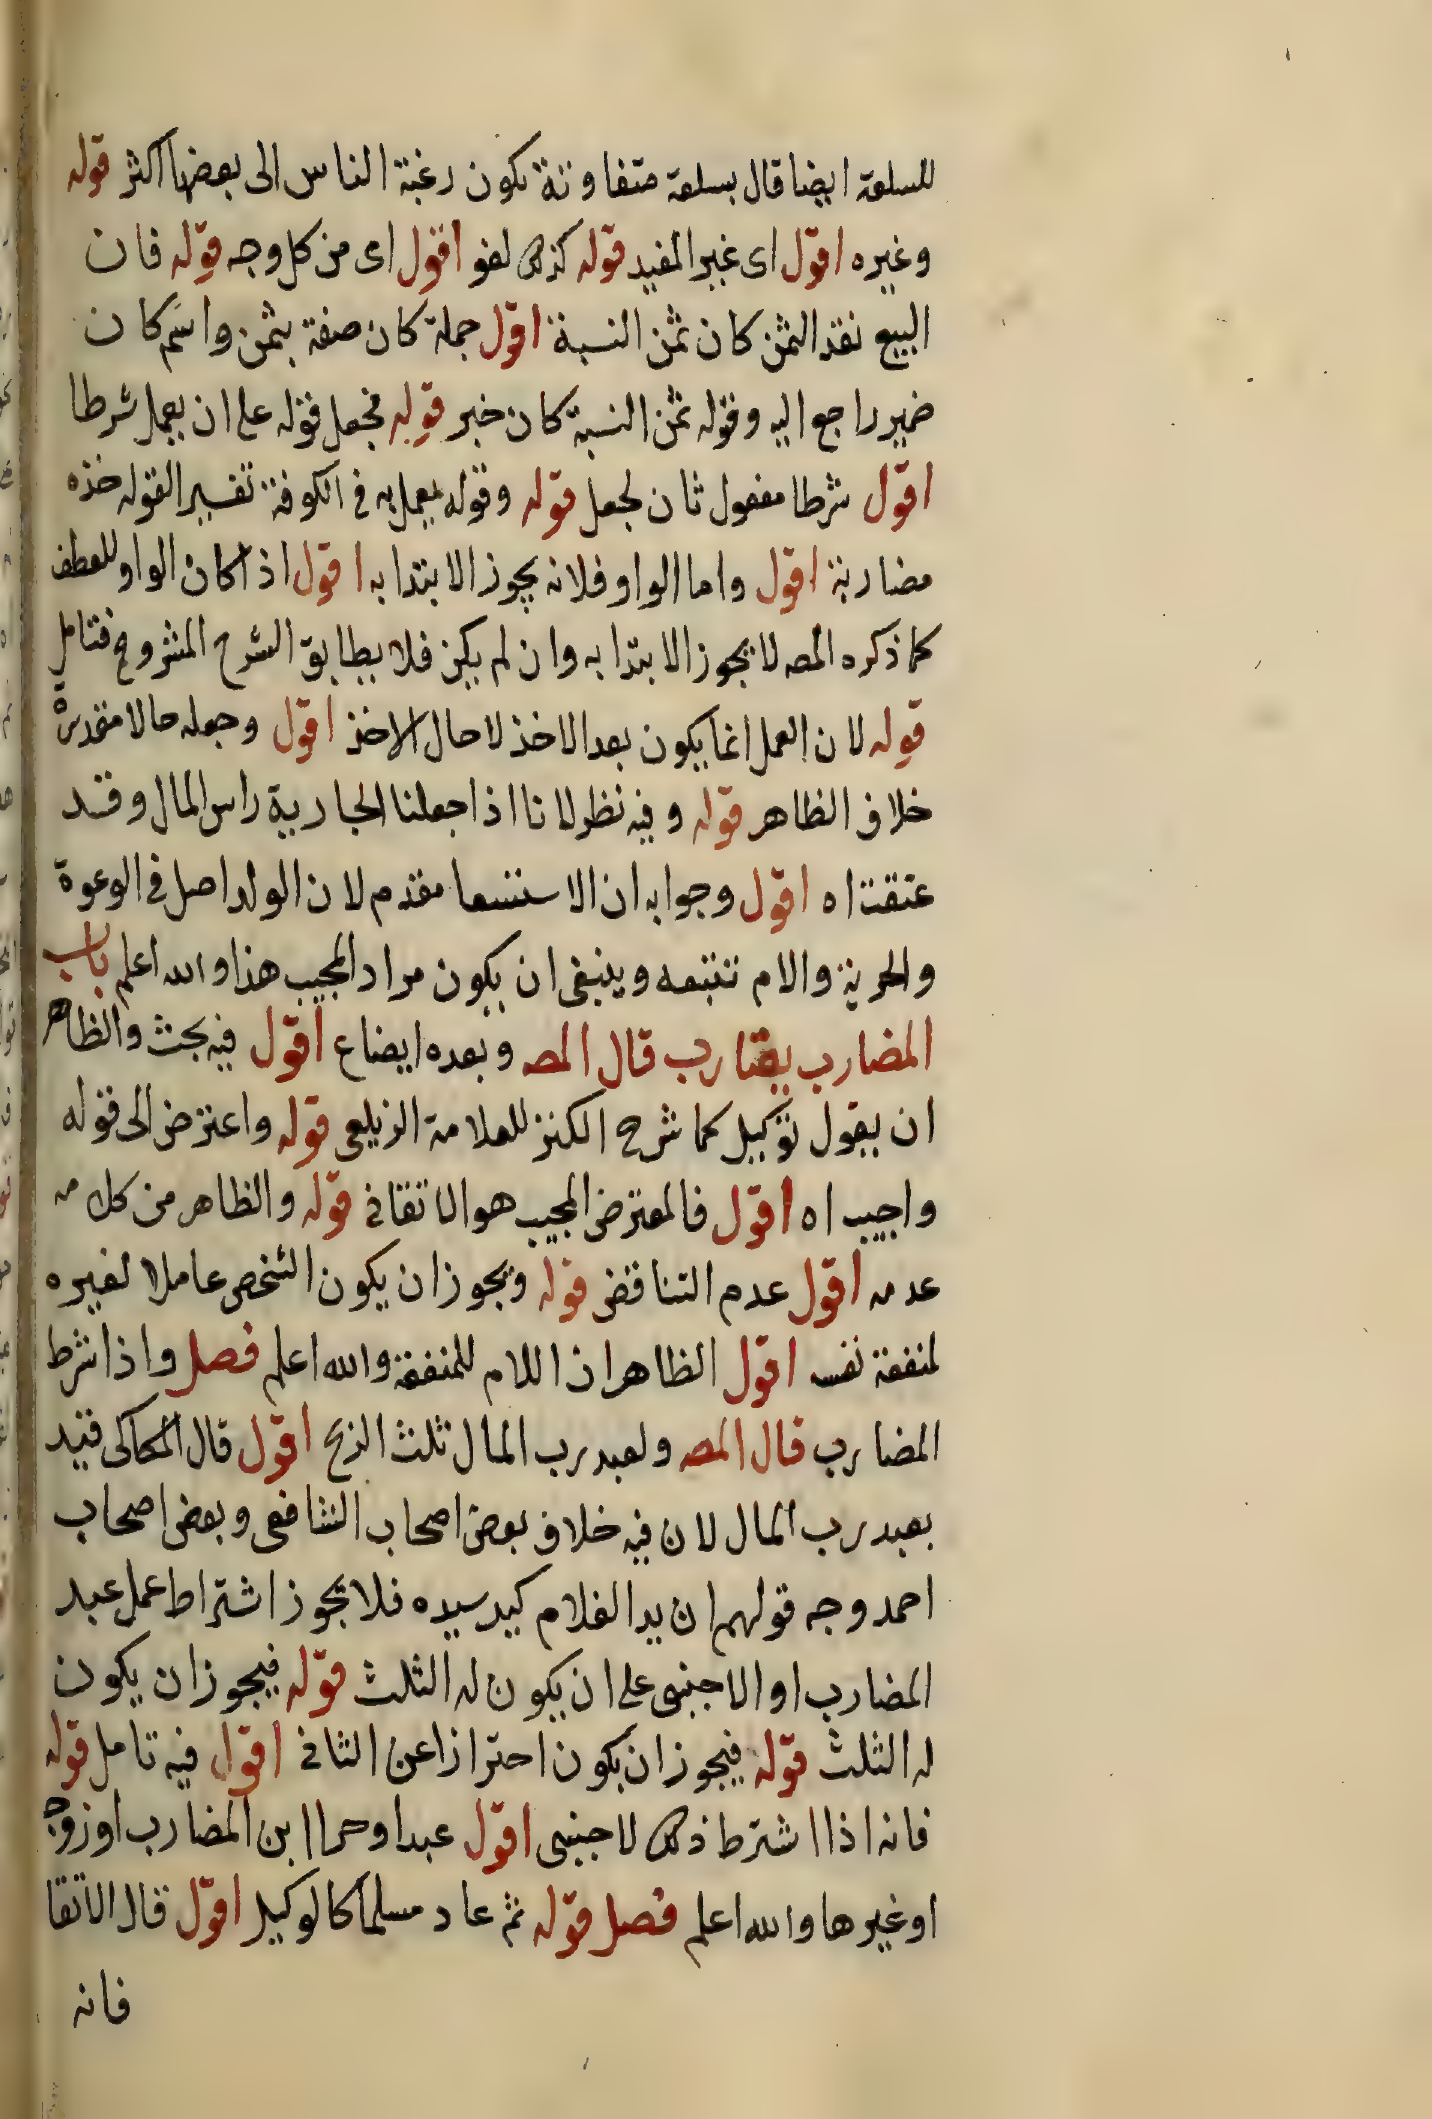 للسلعة ايضا قال بسلعة متفاوتة تكون رغبة الناس الى بعضها اكثر قوله
وغيره اقول اى غير المفيد قوله كذلك لغو اقول اى من كل وجه قوله فان
البيع نقد الثمن كان ثمن النسبة اقول جملة كان صفة بثمن واسم كان
ضمير راجع اليه وقوله ثمن النسبة كان خبر قوله فجعل قوله على ان يعمل شرطا
اقول شرطا مفعول ثان لجعل قوله وقوله يعمل به فى الكوفة تفسير القوله خذه
مضاربة اقول واما الواو فلانه يجوز الابتدا به اقول اذا كان الواو للعطف
كما ذكره المصه لا يجوز الابتدا به وان لم يكن فلا يطابق الشرح المشروح فتامل
قوله لان العمل انما يكون بعد الاخذ لا حال الاخذ اقول وجعله حالا مقدرة
خلاف الظاهر قوله وفيه نظر لانا اذا جعلنا الجارية راس المال وقد
عتقت اه اقول وجوابه ان الاستسعا مقدم لان الولد اصل فى الدعوة
والحرية والام تتبعه وينبغى ان يكون مراد المجيب هذا والله اعلم باب
المضارب يضارب قال المصه وبعده ايضاع اقول فيه بحث والظاهر
ان يقول توكيل كما شرح الكنز للعلامة الزيلعى قوله واعترض الى قوله
واجيب اه اقول فالمعترض المجيب هو الاتقانى قوله والظاهر من كلامه
عدمه اقول عدم التناقض قوله ويجوز ان يكون الشخص عاملا لغيره
لمنفعة نفسه اقول الظاهر ان اللام للمنفعة والله اعلم فصل واذا شرط
المضارب قال المصه ولعبد رب المال ثلث الربح اقول قال الكاكى قيد
بعبد رب المال لان فيه خلاف بعض اصحاب الشافعى وبعض اصحاب
احمد وجه قولهم ان يد الغلام كيد سيده فلا يجوز اشتراط عمل عبد
المضارب او الاجنبى على ان يكون له الثلث قوله فيجوز ان يكون
له الثلث قوله فيجوز ان يكون احترازا عن الثانى اقول فيه تامل قوله
فانه اذا اشترط ذلك لاجنبى اقول عبدا وحرا ابن المضارب او زوجه
او غيرها والله اعلم فصل قوله ثم عاد مسلما كالوكيل اقول قال الاتقا
فانه